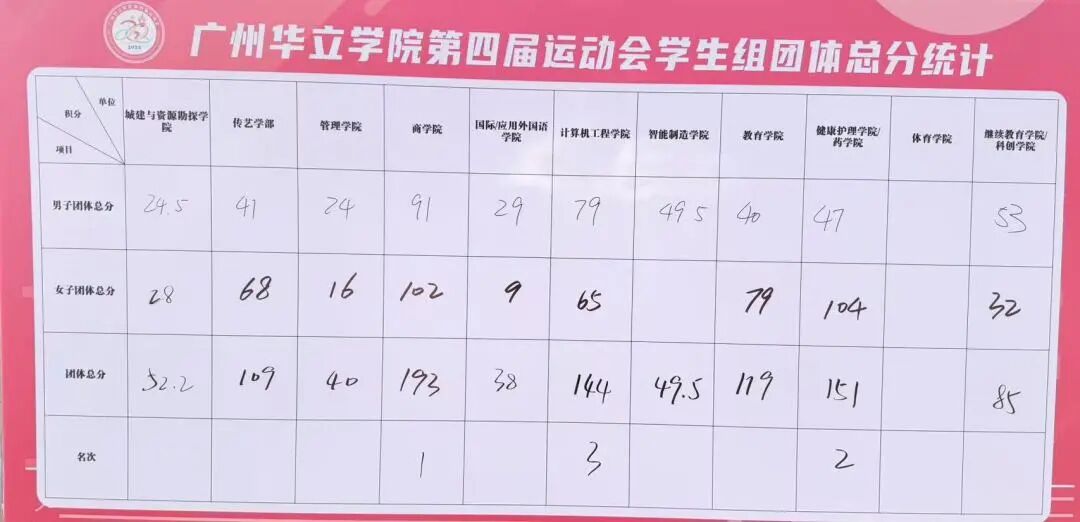 广州华立学院第四届运动会学生组团体总分统计
积分 单位 项目 城建与资源勘探学院 传艺学部 管理学院 商学院 国际/应用外国语学院 计算机工程学院 智能制造学院 教育学院 健康护理学院/药学院 体育学院 继续教育学院/科创学院
男子团体总分 24.5 41 24 91 29 79 49.5 40 47 53
女子团体总分 28 68 16 102 9 65 79 104 32
团体总分 52.2 109 40 193 38 144 49.5 119 151 85
名次 1 3 2